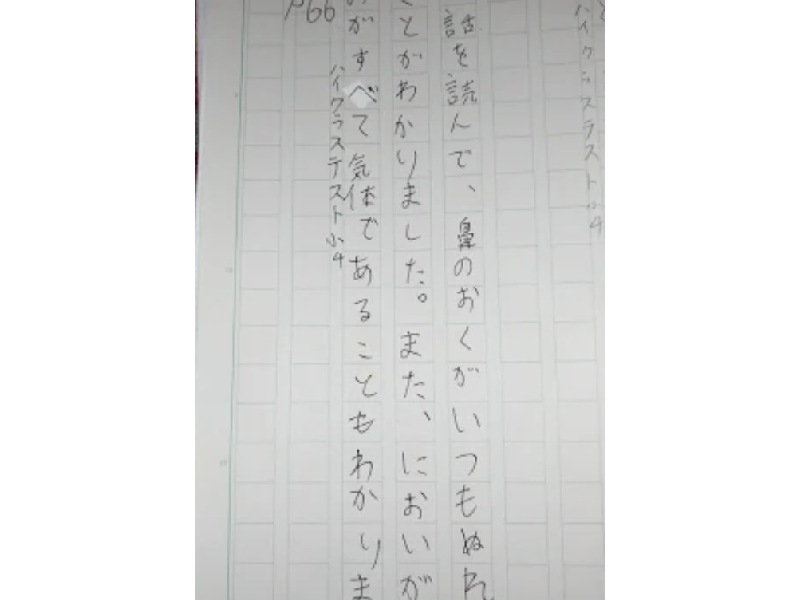 ハイクラステスト小4
話を読んで、鼻のおくがいつもぬれ
ことがわかりました。また、においが
がすべて気体であることもわかりま
ハイクラステスト小4
P66